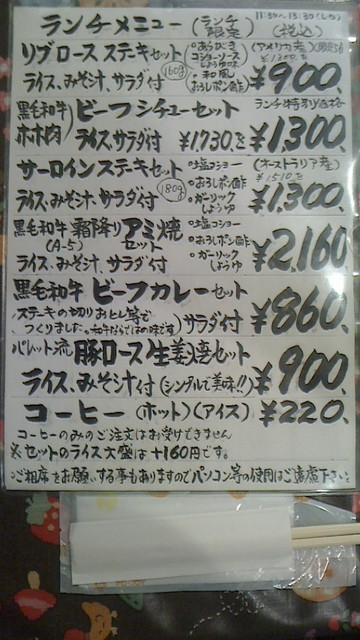 ランチメニュー (ランチ限定) 11:30~13:30(L.O) (税込)
リブロースステキセット 160g (アメリカ産)
・あらびきコショーソース
・和風おろしポン酢
ライス、みそ汁、サラダ付 ¥900、
黒毛和牛ホホ肉 ビーフシチューセット ランチ特別価格
ライス、サラダ付 ¥1,730、を ¥1,300、
サーロインステキセット 180g (オーストラリア産)
・塩コショー
・おろしポン酢
・ガーリックしょうゆ
¥1,510、を
ライス、みそ汁、サラダ付 ¥1,300、
黒毛和牛(A-5) 霜降りアミ焼セット
・塩コショー
・おろしポン酢
・ガーリックしょうゆ
ライス、みそ汁、サラダ付 ¥2,160
黒毛和牛 ビーフカレーセット
(ステーキの切りおとし等でつくりました。和牛ならではの味です) サラダ付 ¥860、
パレット流 豚ロース生姜焼セット
ライス、みそ汁付 (シンプルで美味!!) ¥900、
コーヒー (ホット)(アイス) ¥220、
コーヒーのみのご注文はお受けできません
※セットのライス大盛は+160円です。
ご相席をお願いする事もありますのでパソコン等の使用はご遠慮下さい。